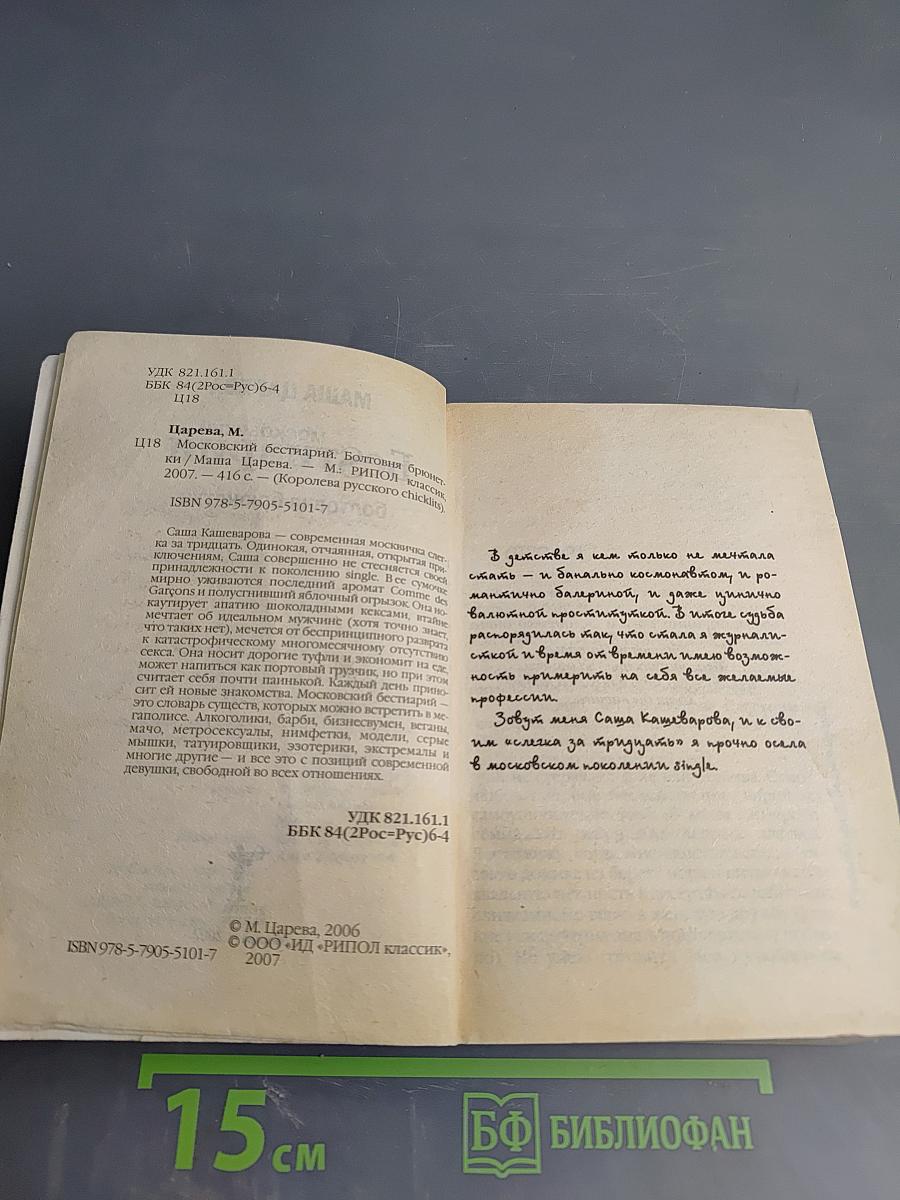 УДК 821.161.1
ББК 84(2Рос=Рус)6-4
Ц18
Царева, М.
Ц18 Московский бестиарий. Болтовня брюнет-
ки / Маша Царева. — М.: РИПОЛ классик,
2007. — 416 с. — (Королева русского chicklits).
ISBN 978-5-7905-5101-7
Саша Кашеварова — современная москвичка слег-
ка за тридцать. Одинокая, отчаянная, открытая при-
ключениям, Саша совершенно не стесняется своей
принадлежности к поколению single. В ее сумочке
мирно уживаются последний аромат Comme des
Garçons и полусгнивший яблочный огрызок. Она но-
каутирует апатию шоколадными кексами, втайне
мечтает об идеальном мужчине (хотя точно знает,
что таких нет), мечется от беспринципного разврата
к катастрофическому многомесячному отсутствию
секса. Она носит дорогие туфли и экономит на еде,
может напиться как портовый грузчик, но при этом
считает себя почти паинькой. Каждый день прино-
сит ей новые знакомства. Московский бестиарий —
это словарь существ, которых можно встретить в ме-
гаполисе. Алкоголики, барби, бизнесвумен, веганы,
мачо, метросексуалы, нимфетки, модели, серые
мышки, татуировщики, эзотерики, экстремалы и
многие другие — и все это с позиций современной
девушки, свободной во всех отношениях.
УДК 821.161.1
ББК 84(2Рос=Рус)6-4
© М. Царева, 2006
© ООО «ИД «РИПОЛ классик»,
2007
ISBN 978-5-7905-5101-7
В детстве я кем только не мечтала
стать — и банально космонавтом, и ро-
мантично балериной, и даже цинично
валютной проституткой. В итоге судьба
распорядилась так, что стала я журнали-
сткой и время от времени имею возмож-
ность примерить на себя все желаемые
профессии.
Зовут меня Саша Кашеварова, и к сво-
им «слегка за тридцать» я прочно осела
в московском поколении single.
15 см
БФ БИБЛИОФАН